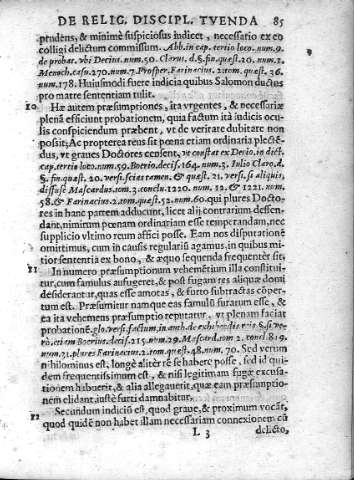 DE RELIG. DISCIPL. TVENDA 85
prudens, & minimè suspiciosus iudicet, necessario ex eo
colligi delictum commissum. Abb. in cap. tertio loco. num. 9.
de probat. vbi Decius. num. 50. Clarus. d. §. fin. quæst. 20. num. 1.
Menoch. casu. 270. num. 7. Prosper. Farinacius. 2. tom. quæst. 36.
num. 178. Huiusmodi fuere indicia quibus Salomon ductus
pro matre sententiam tulit.
10 Hæ autem præsumptiones, ita vrgentes, & necessariæ
plenã efficiunt probationem, quia factum ità iudicis ocu-
lis conspiciendum præbent, vt de veritate dubitare non
possit; Ac propterea reus sit pœna etiam ordinaria plectẽ-
dus, vt graues Doctores censent, vt constat ex Decio in dict.
cap. tertio loco. num. 59. Boerio. decis. 164. num. 3. Iulio Claro. d.
§. fin. quæst. 20. vers. scias tamen, & quæst. 21. vers. si aliquis,
diffusè Mascardus. tom. 3. conclu. 1220. num. 12. & 1221. num.
58. & Farinacius. 2. tom. quæst. 52. num. 60. qui plures Docto-
res in hanc partem adducunt, licet alij contrarium dessen-
dant, nimirum pœnam ordinariam esse temperandam, nec
supplicio vltimo reum affici posse. Eam nos disputationẽ
omittimus, cum in causis regulariũ agamus, in quibus mi-
tior sententia ex bono, & æquo sequenda frequentèr sit.
11 In numero præsumptionum vehemẽtium illa constitui-
tur, cum famulus aufugeret, & post fugam res aliquæ domi
desiderantur, quas esse amotas, & furto subtractas cõper-
tum est. Præsumitur namque eas famuli furatum esse, &
ea ità vehemens præsumptio reputatur, vt plenam faciat
probationẽ. glo. vers. factum, in auth. de exhibendis reis §. si ve-
rò, etiam Boerius. decis. 215. num. 29. Mascard. tom 2. concl. 819.
num. 31. plures Farinacius. 2. tom. quæst. 48. num. 70. Sed verum
nihilominus est, longè alitèr rẽ se habere posse, sed id qui-
dem frequentissimum est, & nisi legitimam fugæ excusa-
tionem habuerit, & alia allegauerit, quæ eam præsumptio-
nem elidant, iustè furti damnabitur.
12 Secundum indiciũ est, quod graue, & proximum vocãt,
quod quidẽ non habet illam necessariam connexionem cũ
L 3 delicto,